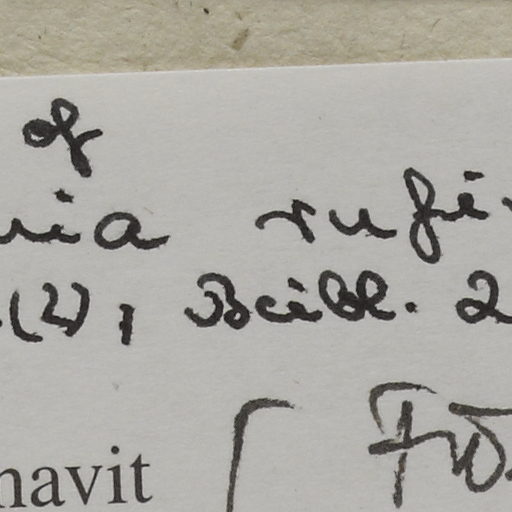 of
nia rufi
(2), Beibl. 2
navit